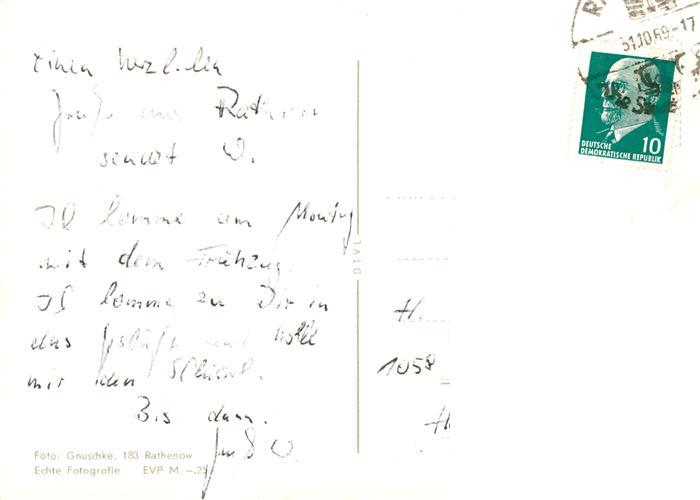 Einen herzlichen
Gruß aus Rathenow
sendet W.
Ich komme am Montag
mit dem Frühzug.
Ich komme zu Dir in
das und
mir den
Bis dann.
Gruß W.
Foto: Gnuschke, 183 Rathenow
Echte Fotografie EVP M –.25
DTVL
31.10.69-17
DEUTSCHE
DEMOKRATISCHE REPUBLIK
10
H.
1058
H